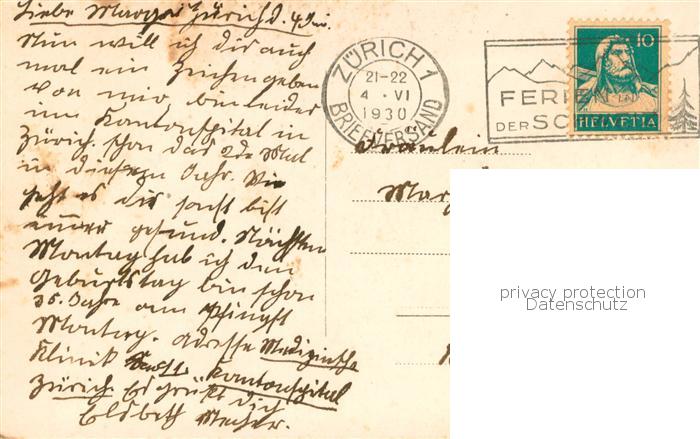 Liebe Margr Zürich d. 4 Juni.
Nun will ich dir auch
mal ein Zeichen geben
von mir, bin leider
im Kantonspital in
Zürich. schon das 2te Mal
in diesem Jahr. Wie
geht es dir sonst bist
immer gesund. Nächsten
Montag hab ich den
Geburtstag bin schon
35. Jahre am Pfingst
Montag. Adresse Medizinische
Klinik Kantonspital
Zürich Es grüßt dich
Elsbeth
ZÜRICH 1
21-22
4. VI
1930
BRIEFVERSAND
FERIEN IN
DER SC
10
HELVETIA
Fräulein
Mar
privacy protection
Datenschutz